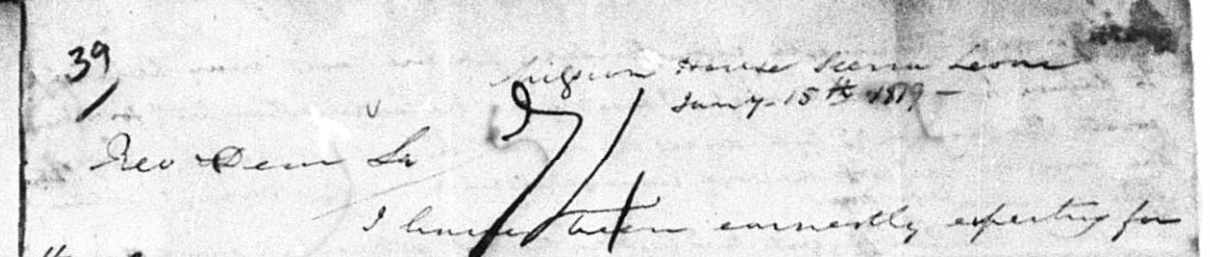 39
Mission House Sierra Leone
Jany. 15th 1819 -
Rev Dear Sir
I have been earnestly expecting for